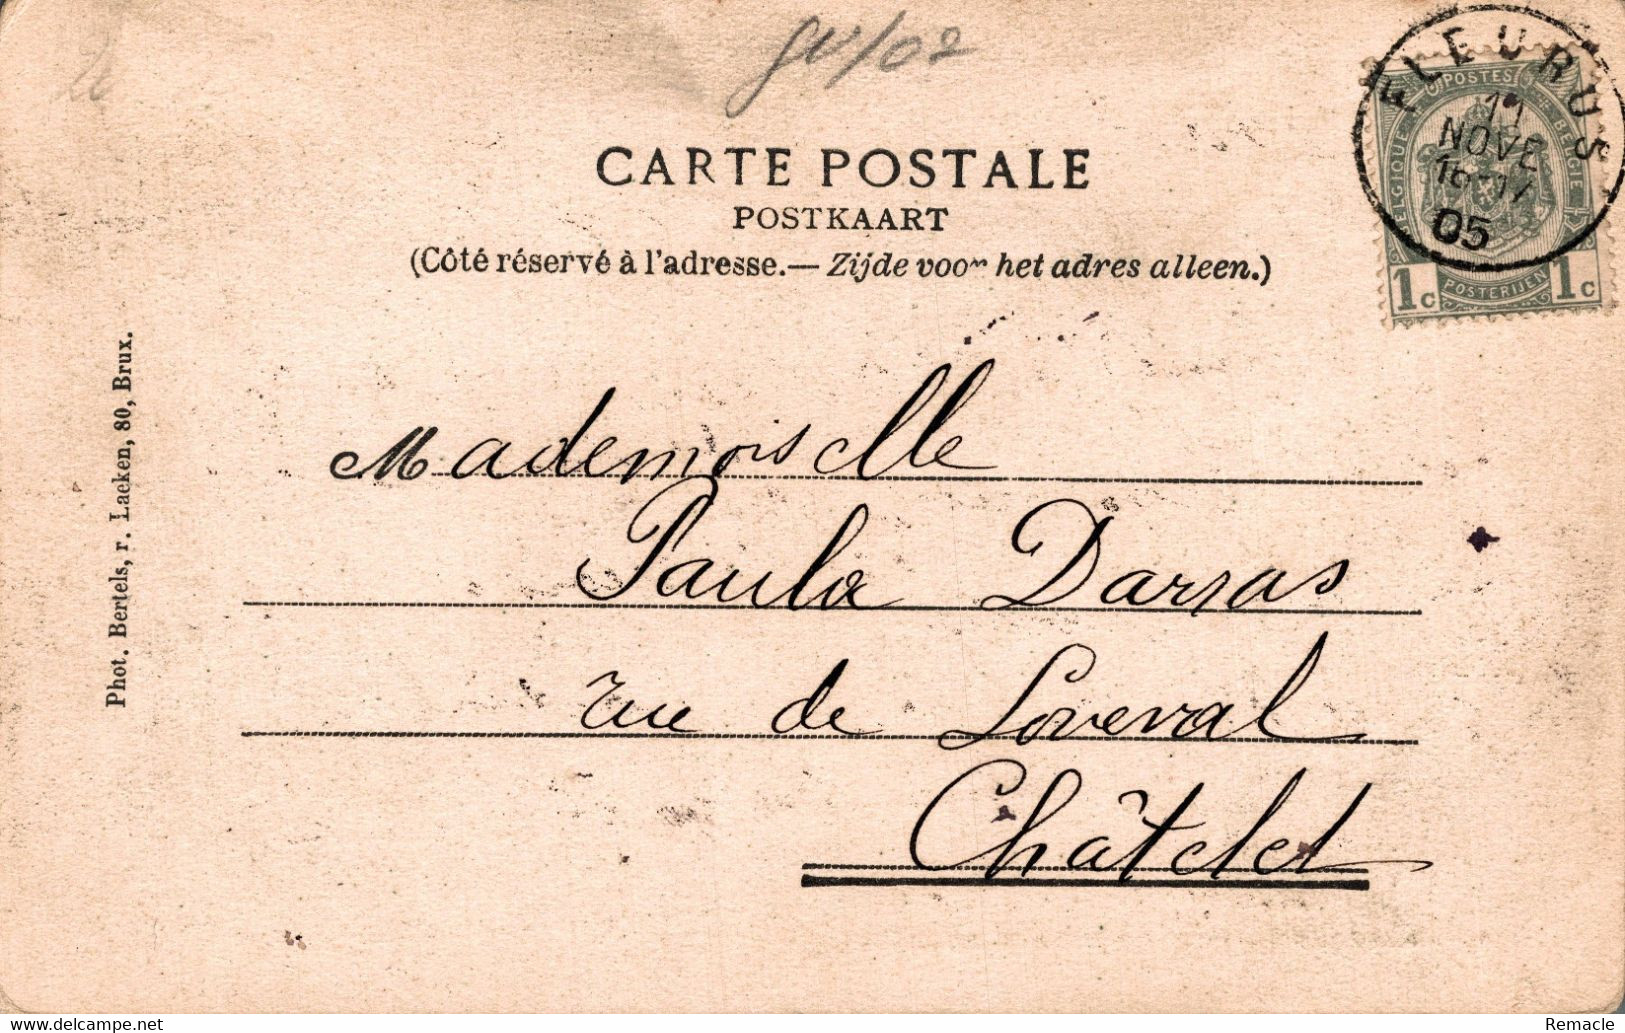 gv/02
CARTE POSTALE
POSTKAART
(Côté réservé à l'adresse.— Zijde voor het adres alleen.)
FLEURUS
NOVE
16-17
05
POSTES
BELGIQUE
BELGIE
1c POSTERIJEN 1c
Mademoiselle
Paula Darras
rue de Loverval
Châtelet
Phot. Bertels, r. Laeken, 80, Brux.
delcampe.net
Remacle